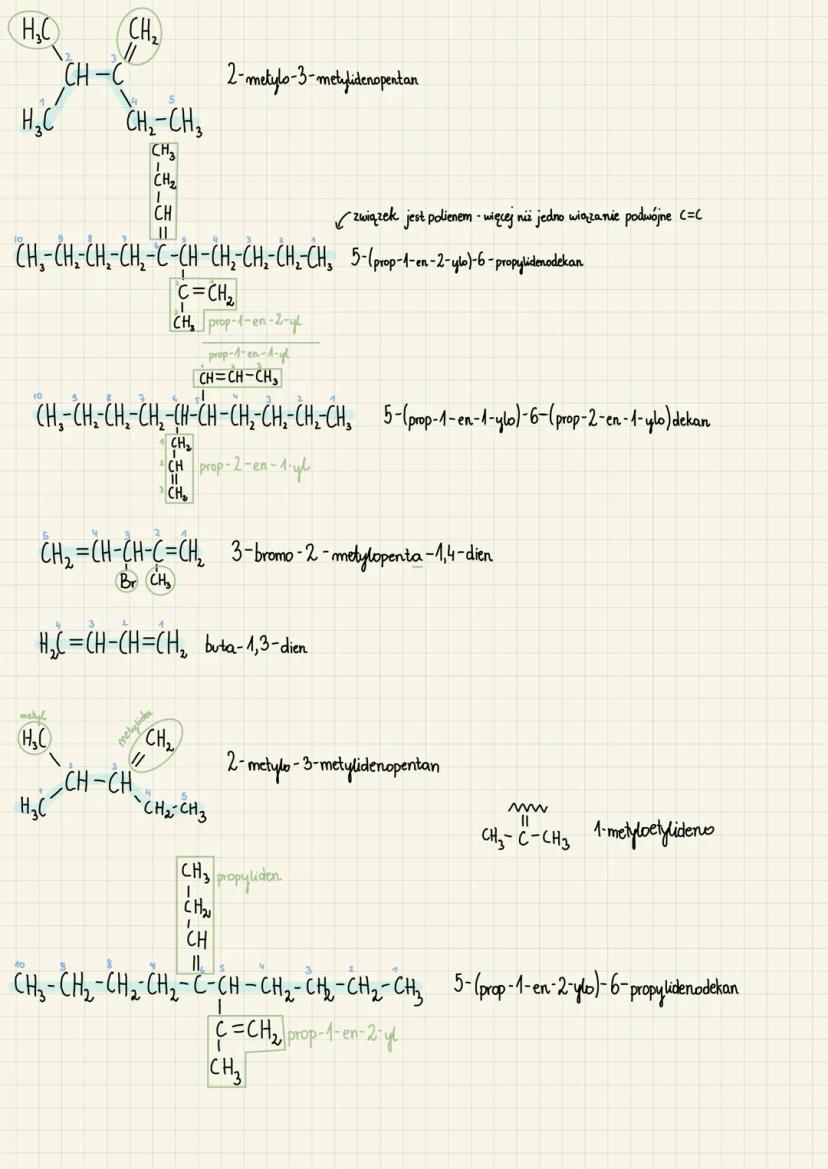 H₃C CH₂
2 3
CH-C 2-metylo-3-metylidenopentan
1 4 5
H₃C CH₂-CH₃
CH₃
CH₂
CH
związek jest polienem - więcej niż jedno wiązanie podwójne C=C
10 9 8 7 6 5 4 3 2 1
CH₃-CH₂-CH₂-CH₂-C-CH-CH₂-CH₂-CH₂-CH₃ 5-(prop-1-en-2-ylo)-6-propylidenodekan
C=CH₂
CH₃ prop-1-en-2-yl
prop-1-en-1-yl
CH=CH-CH₃
10 9 8 7 6 5 4 3 2 1
CH₃-CH₂-CH₂-CH₂-CH-CH-CH₂-CH₂-CH₂-CH₃ 5-(prop-1-en-1-ylo)-6-(prop-2-en-1-ylo)dekan
1 CH₂
2 CH prop-2-en-1-yl
3 CH₂
5 4 3 2 1
CH₂=CH-CH-C=CH₂ 3-bromo-2-metylopenta-1,4-dien
Br CH₃
4 3 2 1
H₂C=CH-CH=CH₂ buta-1,3-dien
metyl metyliden
H₃C CH₂
2 3
CH-CH 2-metylo-3-metylidenopentan
1 4 5
H₃C CH₂-CH₃
CH₃-C-CH₃ 1-metyloetylideno
CH₃ propyliden
CH₂
CH
10 9 8 7 6 5 4 3 2 1
CH₃-CH₂-CH₂-CH₂-C-CH-CH₂-CH₂-CH₂-CH₃ 5-(prop-1-en-2-ylo)-6-propylidenodekan
C=CH₂ prop-1-en-2-yl
CH₃